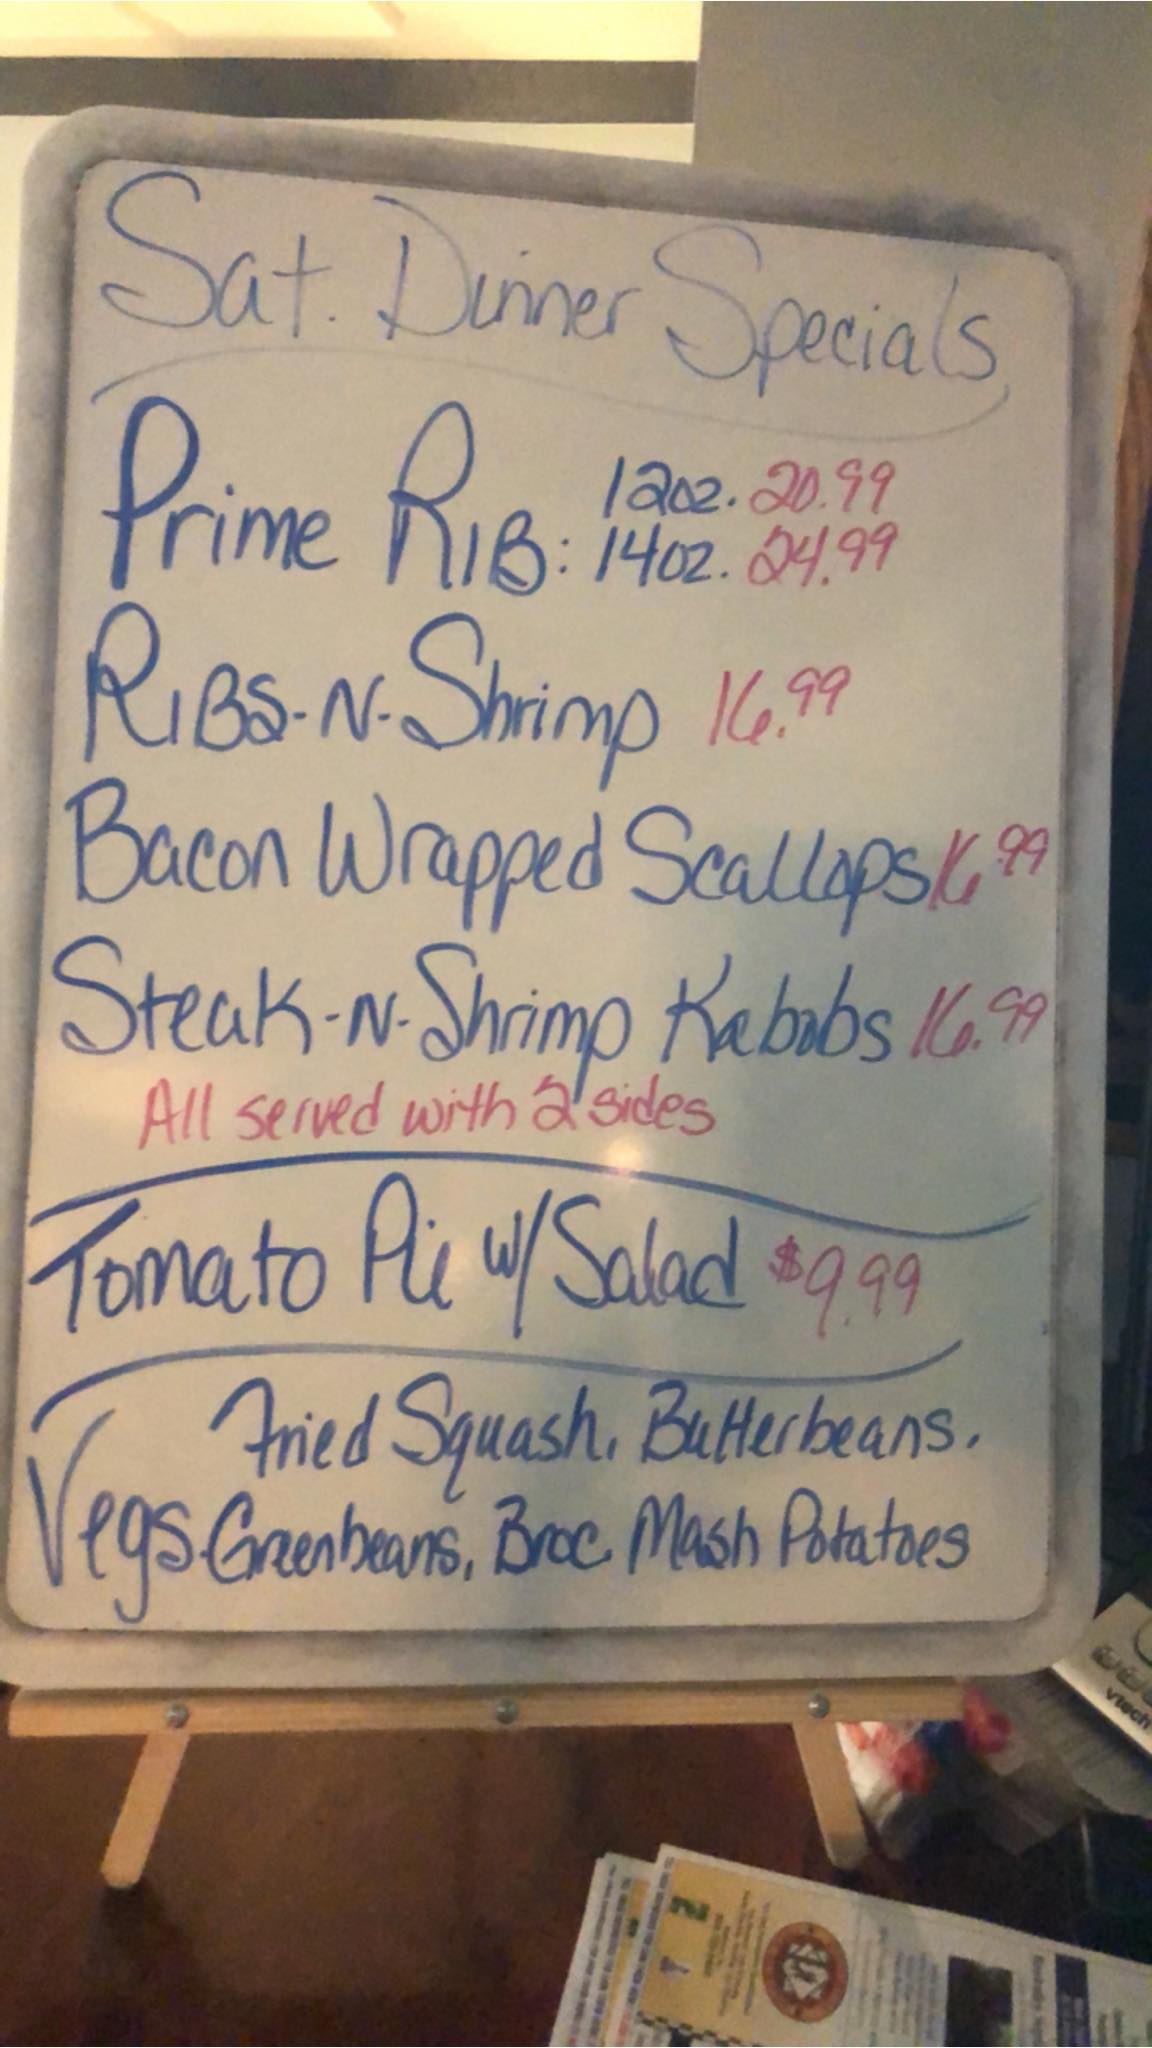 Sat. Dinner Specials
Prime RIB: 12oz. 20.99
14oz. 24.99
RIBS-N-Shrimp 16.99
Bacon Wrapped Scallops 16.99
Steak-N-Shrimp Kabobs 16.99
All served with 2 sides
Tomato Pie w/ Salad $9.99
Fried Squash, Butterbeans,
Vegs. Greenbeans, Broc. Mash Potatoes
vtech